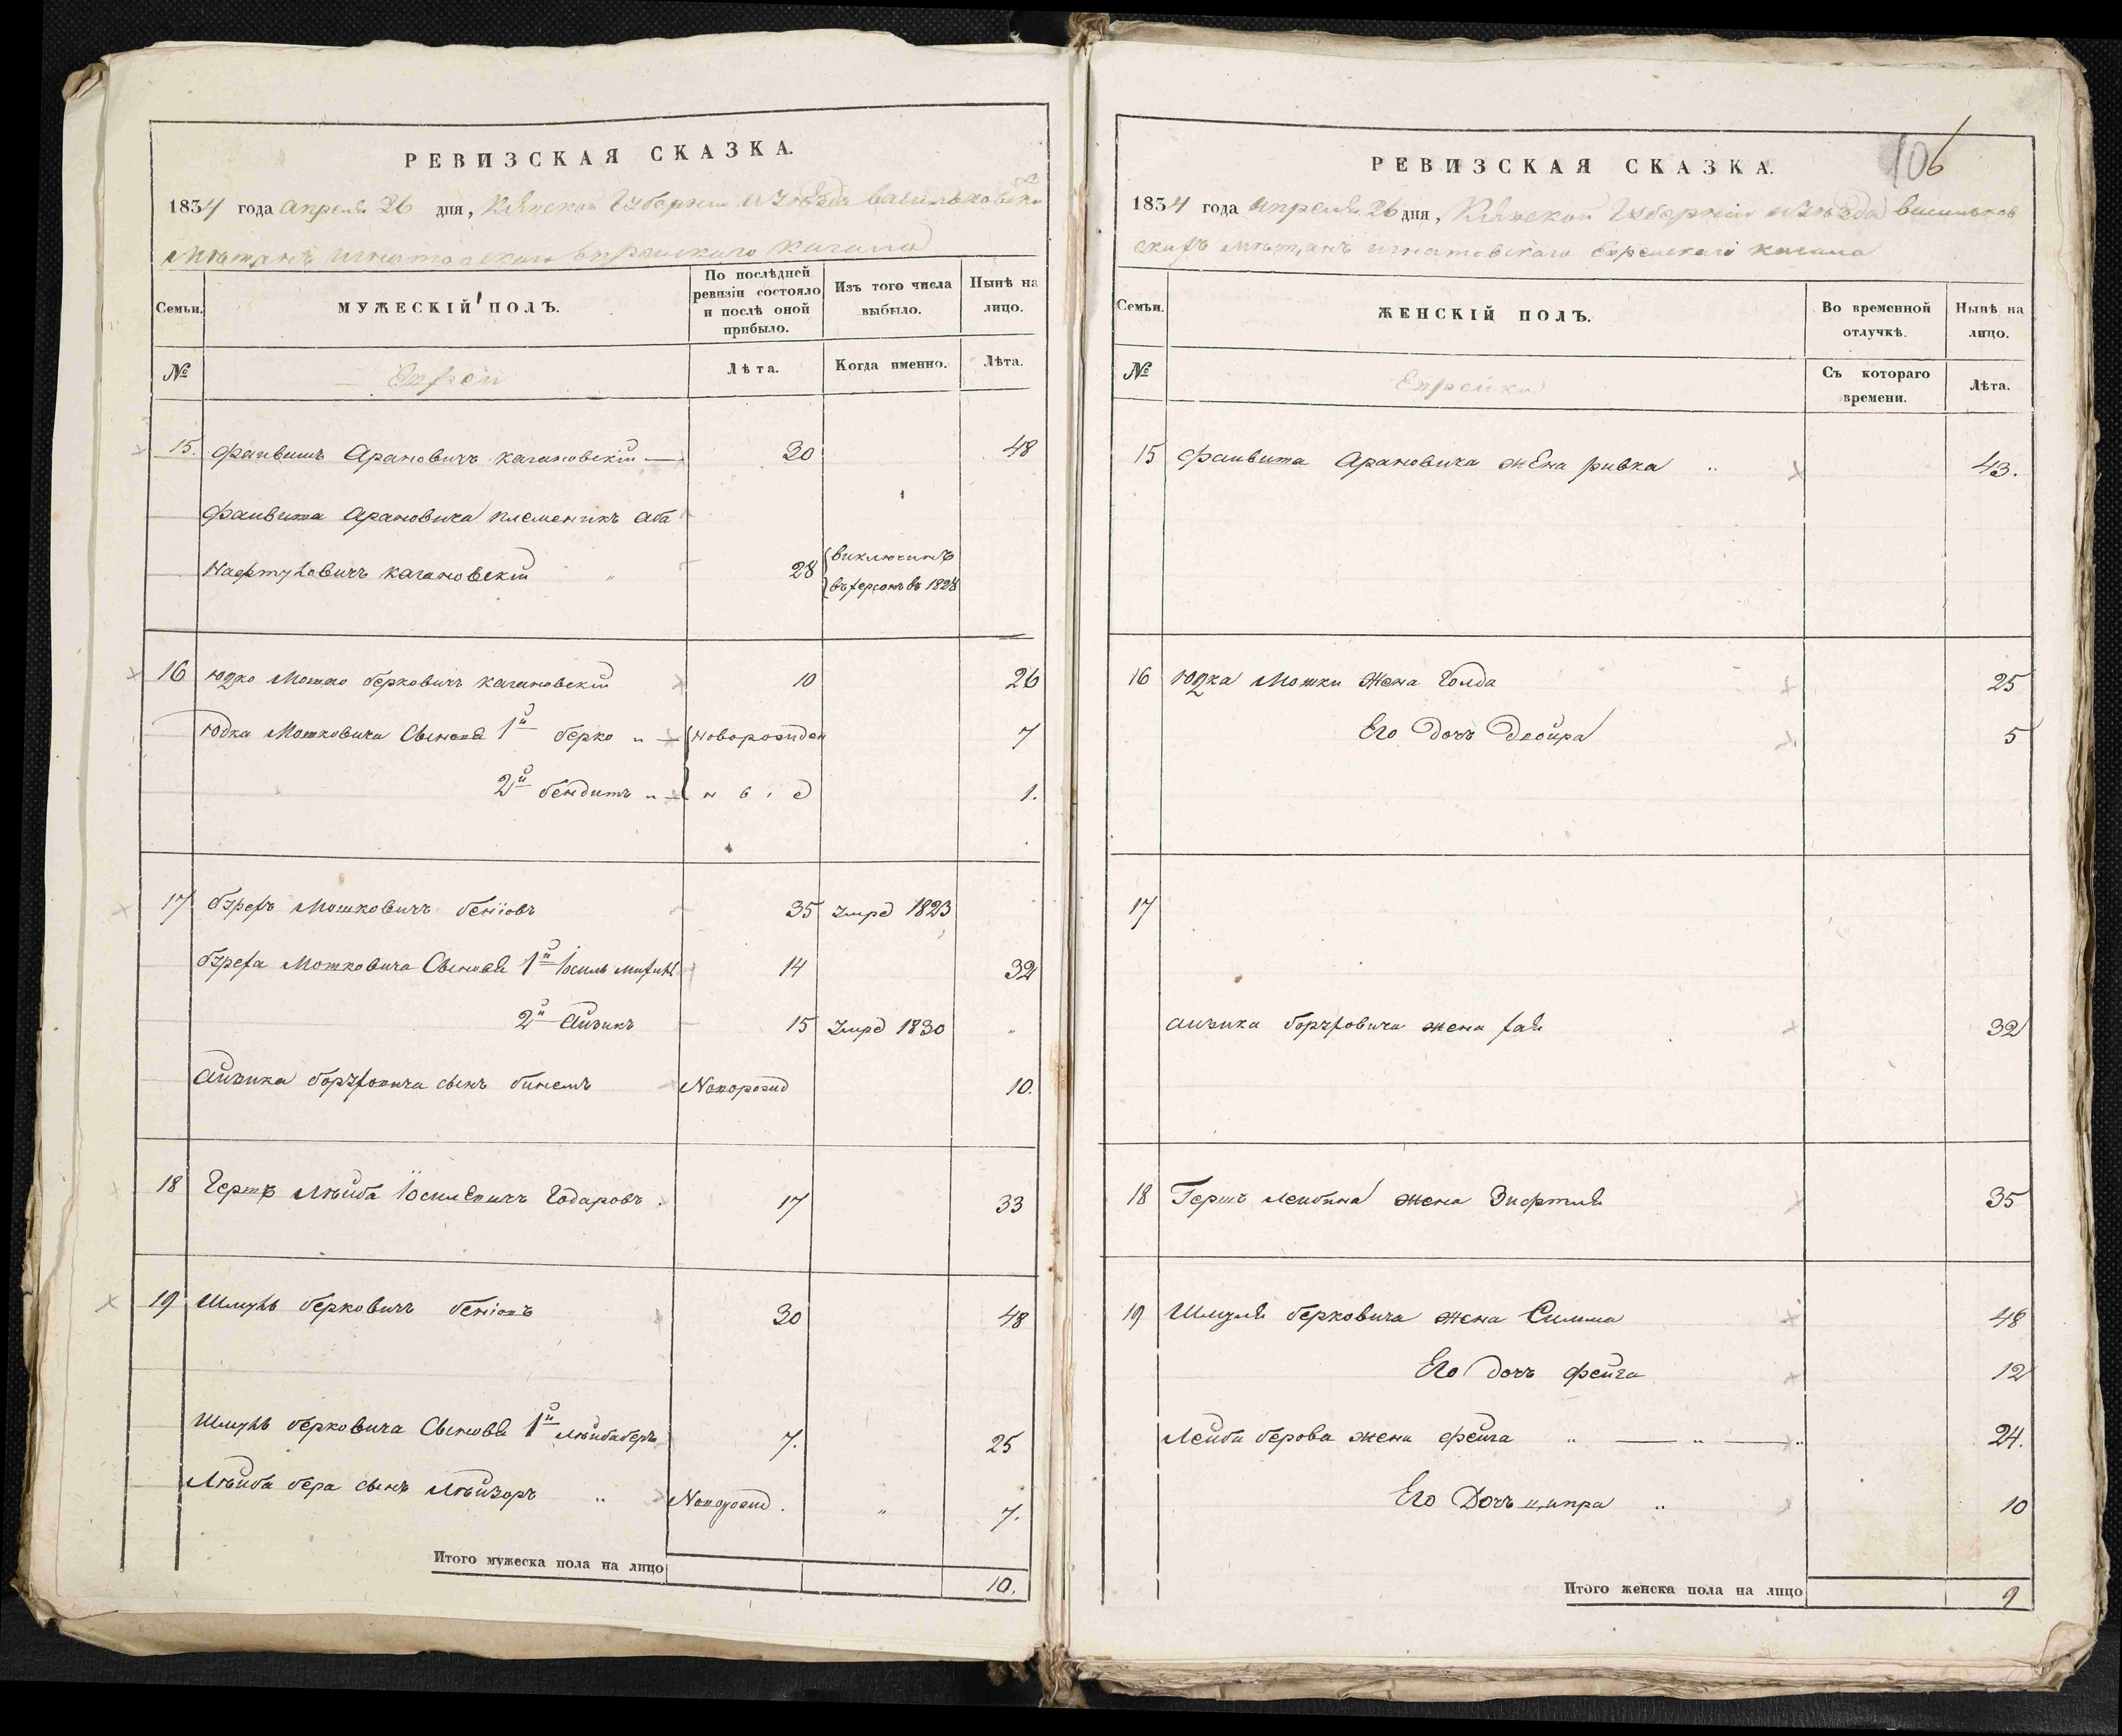 РЕВИЗСКАЯ СКАЗКА.
1834 года Апреля 26 дня, Кіевской Губерніи и уѣзда васильковски
Мѣщанъ игнатовскаго Еврейскаго Кагала
Семьи.
МУЖЕСКІЙ ПОЛЪ.
По послѣдней ревизіи состояло и послѣ оной прибыло.
Изъ того числа выбыло.
Нынѣ на лицо.
№
Евреи
Лѣта.
Когда именно.
Лѣта.
15. Фаивишъ Арановичъ Кагановскій 30 48
Фаивиша Арановича племеникъ Аба
Нафтуловичъ Кагановскій 28 виключинъ
въ херсонъ въ 1828
16 Юдко Мошко берковичъ Кагановскій 10 26
Юдка Мошковича Сыновя 1й берко новорожден 7
2й бендитъ 1.
17 Мошковичъ 35 умре 1823
Мошковича Сыновя 1й 14 32
2й Айзикъ 15 умре 1830
Айзика сынъ бинемъ Новорожд 10.
18 Гершъ Лѣйба Іосилевичъ Годаровъ. 17 33
19 Шмуль берковичъ 30 48
Шмуль берковича Сыновя 1й лѣйбаберъ 7. 25
Лѣйба бера сынъ Лѣйзоръ Новорожд. 7.
Итого мужеска пола на лицо 10.
106
РЕВИЗСКАЯ СКАЗКА.
1834 года Апреля 26 дня, Кіевской Губерніи и уѣзда васильков
скихъ мѣщанъ игнатовскаго Еврейскаго кагала
Семьи.
ЖЕНСКІЙ ПОЛЪ.
Во временной отлучкѣ.
Нынѣ на лицо.
№
Еврейки
Съ котораго времени.
Лѣта.
15 Фаивиша Арановича жена ривка 43.
16 Юдка Мошки жена Голда 25
Его Дочь Двойра 5
17
Айзика жена хая 32
18 Гершъ лейбина жена Энфтля 35
19 Шмуля берковича жена Симма 48
Его дочь фейга 12
Лейби берова жена фейга 24.
Его Дочь ципра 10
Итого женска пола на лицо 9